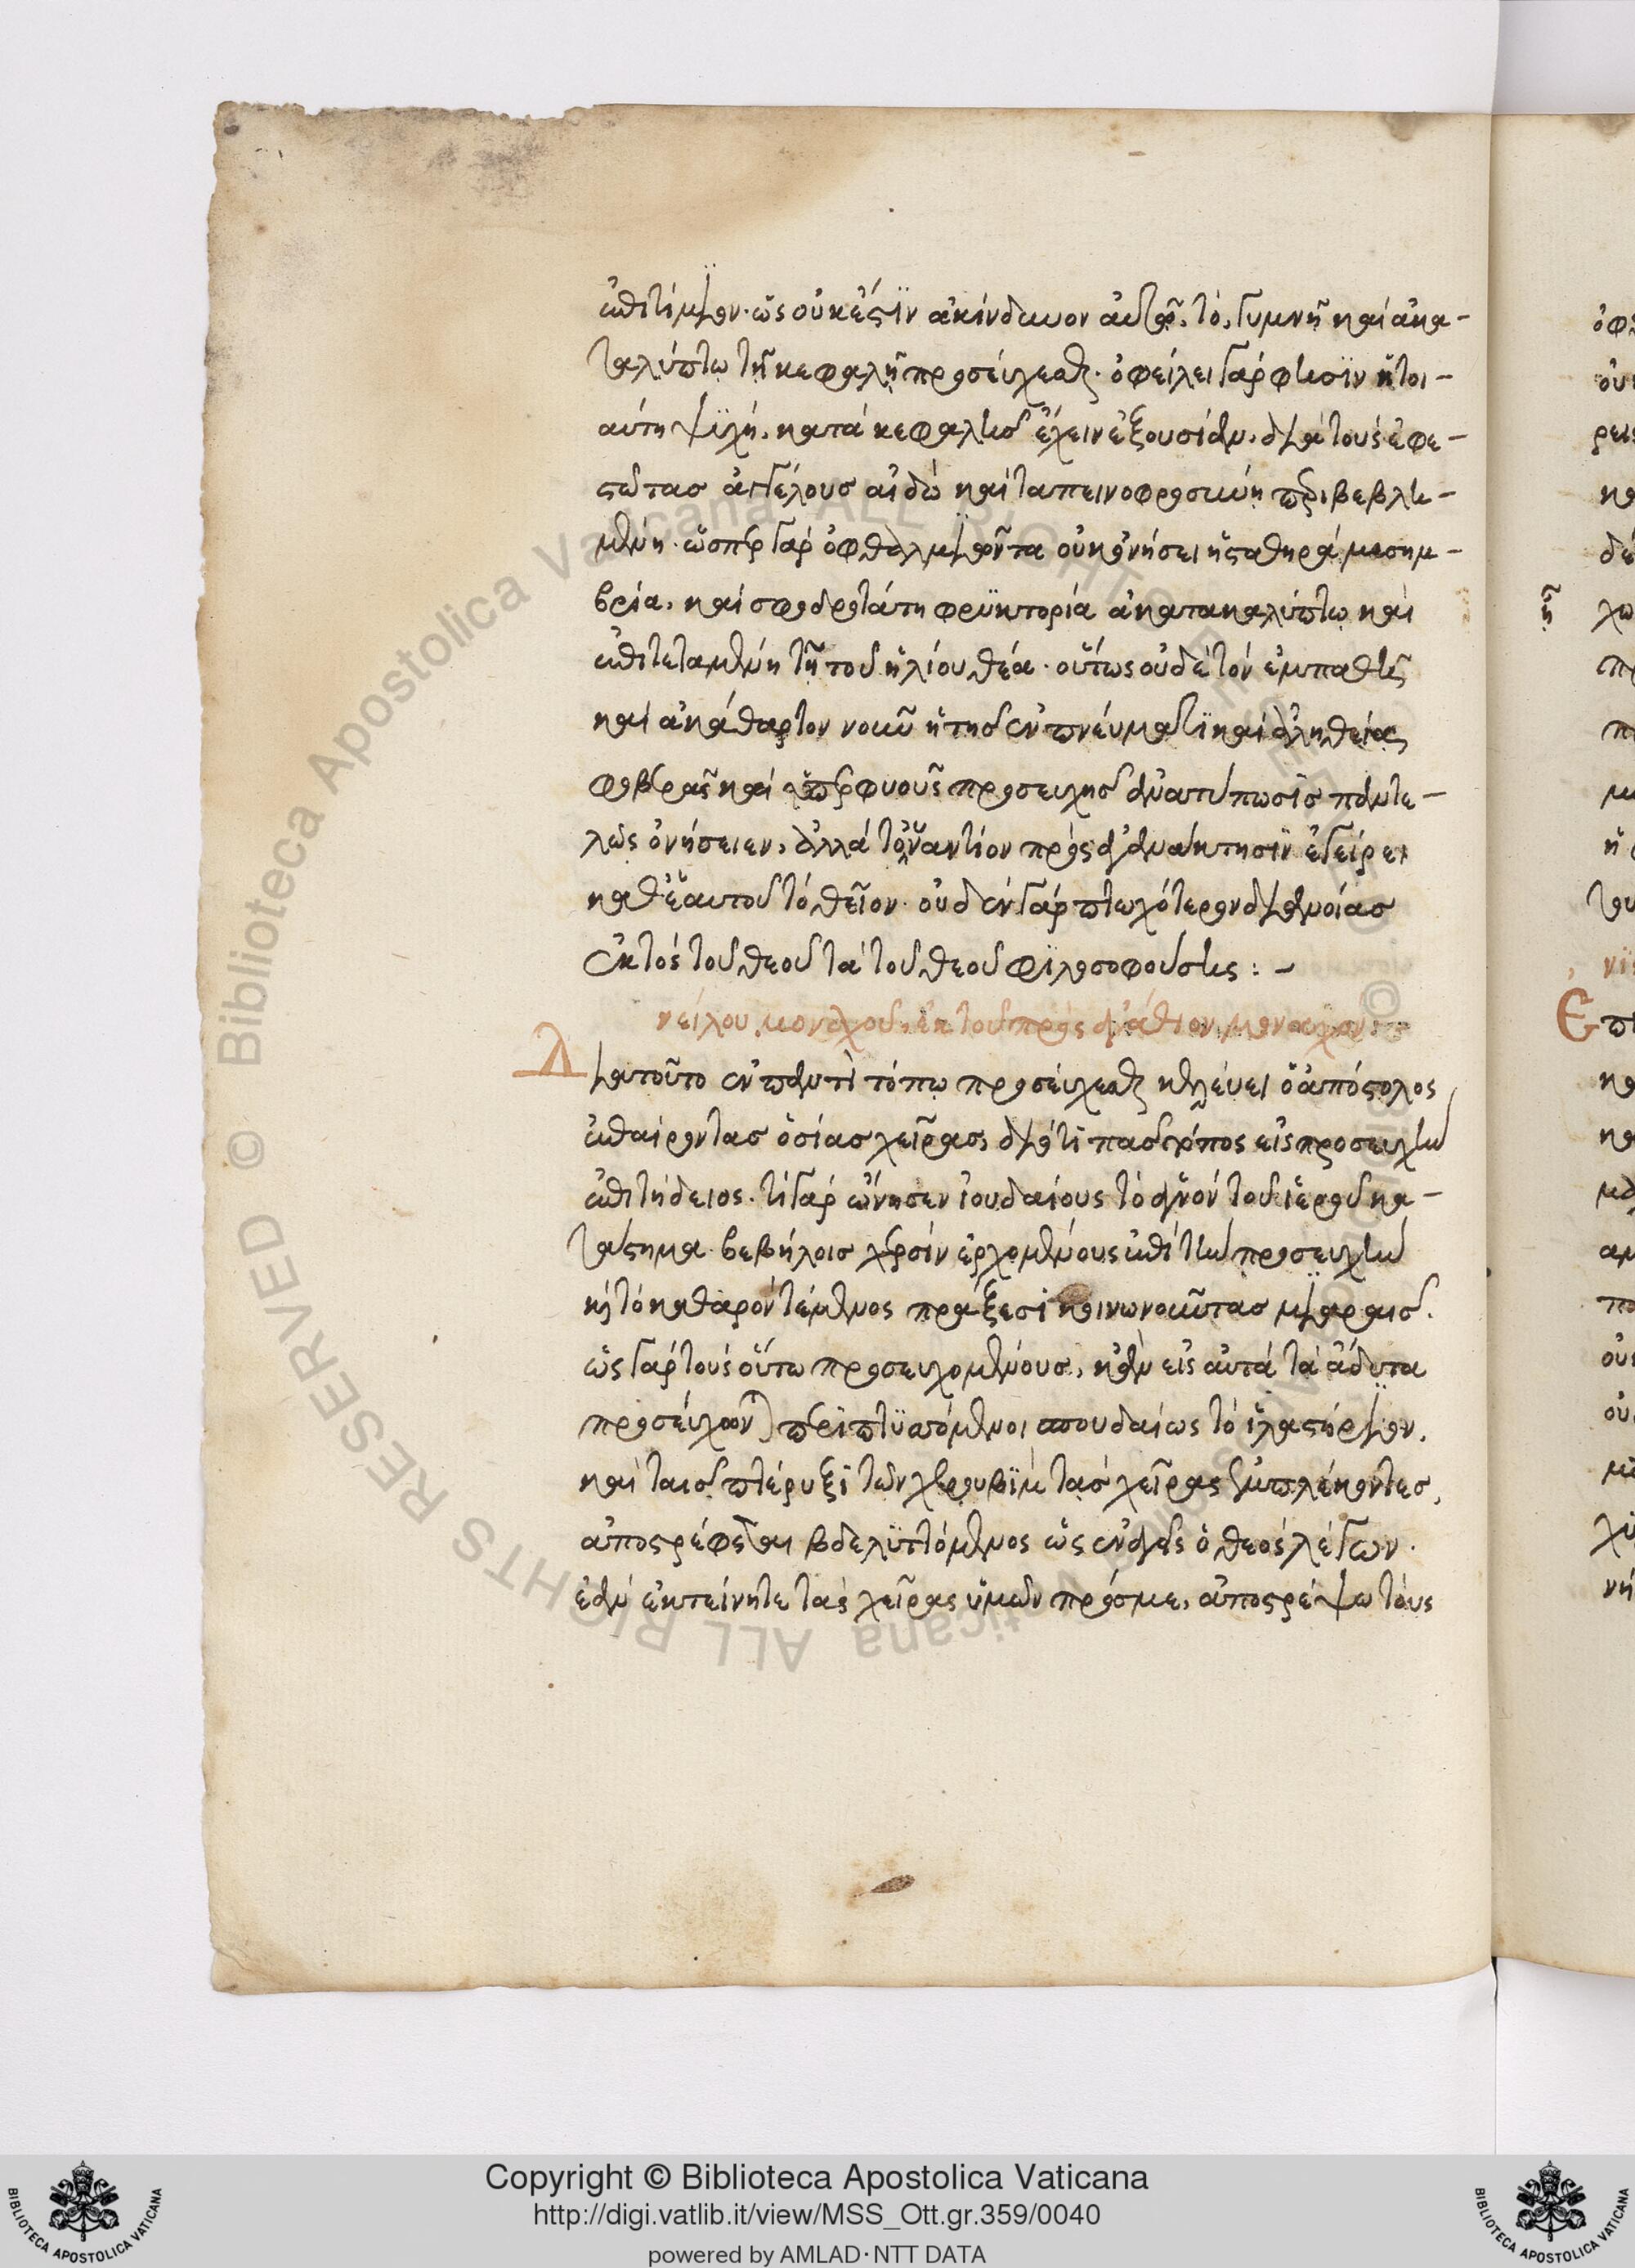 ἐπιτίμιον. ὡς οὐκ ἔστιν ἀκίνδυνον αὐτῶ, τὸ, γυμνῆ καὶ ἀκα-
ταλύπτω τῆ κεφαλῆ προσεύχεσθαι. ὀφείλει γάρ φησιν ἡ τοι-
αύτη ψυχή, κατὰ κεφαλῆς ἔχειν ἐξουσίαν, διὰ τοὺς ἐφε-
στῶτας ἀγγέλους αἰδῶ καὶ ταπεινοφροσύνη περιβεβλη-
μένη. ὥσπερ γὰρ ὀφθαλμιῶντα οὐκ ὀνήσει ἡ σταθηρὰ μεσημ-
βρία, καὶ σφοδροτάτη φρυκτορία ἀκατακαλύπτω καὶ
ἐπιτεταμένη τῆ τοῦ ἡλίου θέα. οὕτως οὐδὲ τὸν ἐμπαθῆ
καὶ ἀκάθαρτον νοῦν ἡ τῆς ἐν πνεύματι καὶ ἀληθείας
φοβερᾶς καὶ ὑπερφυοῦς προσευχῆς ἀνατύπωσις παντε-
λῶς ὀνήσειεν, ἀλλὰ τοὐναντίον πρὸς ἀγανάκτησιν ἐγείρει
καθ' ἑαυτοῦ τὸ θεῖον. οὐδὲν γὰρ πτωχότερον διανοίας
ἐκτὸς τοῦ θεοῦ τὰ τοῦ θεοῦ φιλοσοφούσης: -
νείλου μοναχοῦ, ἐκ τοῦ πρὸς ἀγάθιον μονάχον:
Διατοῦτο ἐν παντὶ τόπω προσεύχεσθαι κελεύει ὁ ἀπόστολος
ἐπαίροντας ὁσίας χεῖρας, διότι πᾶς τρόπος εἰς προσευχὴν
ἐπιτήδειος. τί γὰρ ὤνησεν ἰουδαίους τὸ ἁγνὸν τοῦ ἱεροῦ κα-
τάστημα βεβήλοις χερσὶν ἐρχομένους ἐπὶ τὴν προσευχὴν
καὶ τὸ καθαρὸν τέμενος πράξεσι κοινωνοῦντας μιαραῖς.
ὡς γὰρ τοὺς οὕτω προσευχομένους, κἂν εἰς αὐτὰ τὰ ἄδυτα
προσεύχωνται περιπτυσσόμενοι σπουδαίως τὸ ἱλαστήριον,
καὶ ταῖς πτέρυξι τῶν χερουβὶμ τὰς χεῖρας ἐμπλέκοντες,
ἀποστρέφεται βδελυττόμενος ὡς ἐναγεῖς ὁ θεὸς λέγων.
ἐὰν ἐκτείνητε τὰς χεῖρας ὑμῶν πρός με, ἀποστρέψω τοὺς
Copyright © Biblioteca Apostolica Vaticana
http://digi.vatlib.it/view/MSS_Ott.gr.359/0040
powered by AMLAD·NTT DATA